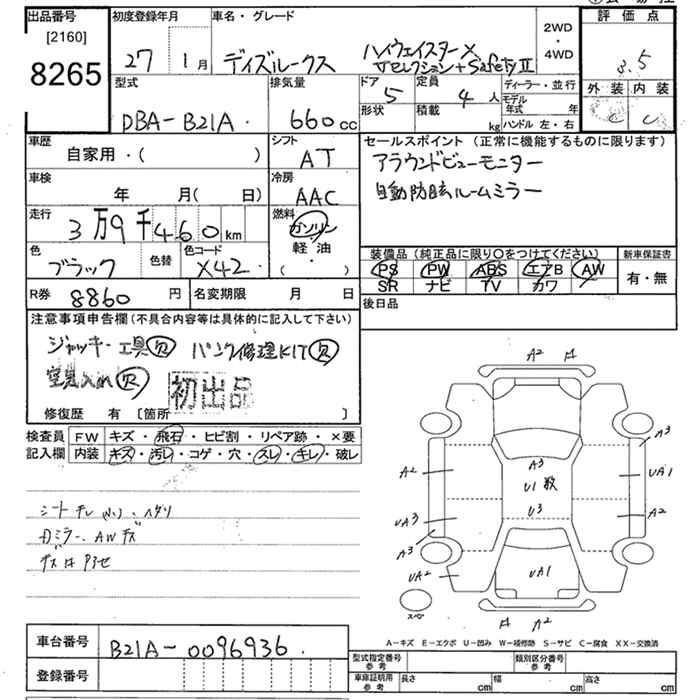 出品番号 初度登録年月 車名・グレード 評価点
[2160] 2WD
8265 27 1月 デイズルークス ハイウェイスターX ・ 3.5
Vセレクション+SafetyⅡ 4WD
型式 排気量 ドア 定員 ディーラー・並行 外装 内装
DBA-B21A 660cc 5 4人 モデル年式 年 C C
形状 積載 kg ハンドル 左・右
車歴 シフト セールスポイント(正常に機能するものに限ります)
自家用・( ) AT アラウンドビューモニター
車検 冷房 自動防眩ルームミラー
年 月(日) AAC
走行 燃料
3万9千460km ガソリン
色 色替 色コード 軽・油 装備品(純正品に限り○をつけてください) 新車保証書
ブラック X42 ・( ) PS PW ABS エアB AW 有・無
SR ナビ TV カワ
R券 8860円 名変期限 月 日 後日品
注意事項申告欄(不具合内容等は具体的に記入して下さい)
ジャッキー工具欠 パンク修理KIT欠
欠 初出品
修復歴 有 [箇所 ]
検査員 FW キズ・飛石・ヒビ割・リペア跡・×要
記入欄 内装 キズ・汚レ・コゲ・穴・スレ・キレ・破レ
A2
A3
A3 UA1
A2 U1数
UA3 U3 A2
A3
UA2 UA1
スペアー
A2
シートキレ(小)、ヘタリ
ガミラー、AWキズ
A-キズ E-エクボ U-凹み W-補修跡 S-サビ C-腐食 XX-交換済
車台番号 B21A-0096936
登録番号
型式指定番号 参考 類別区分番号 参考
車庫証明用 参考 長さ cm 幅 cm 高さ cm